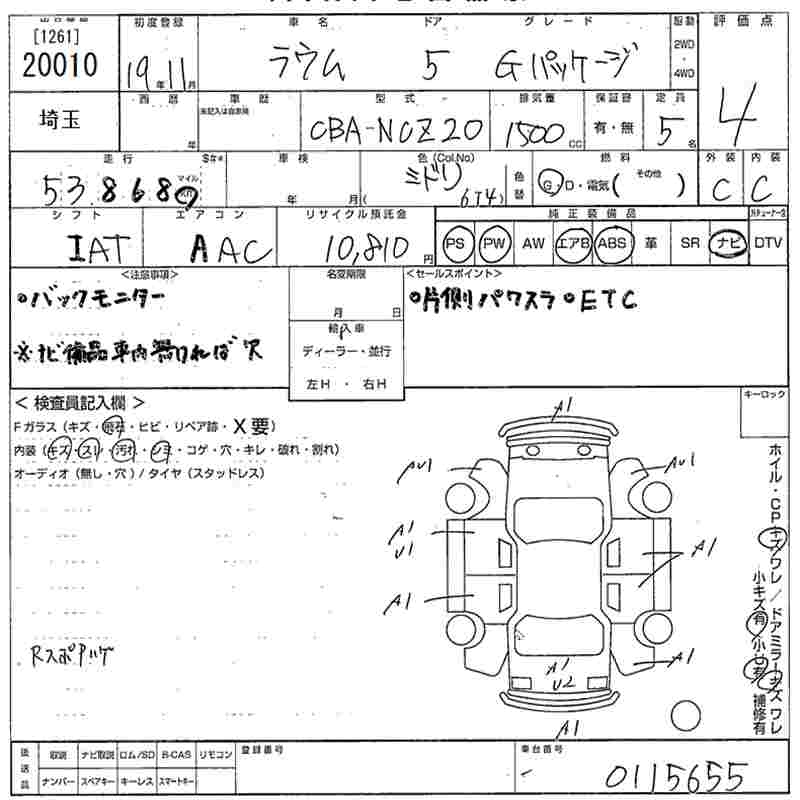 [1261]
20010
初度登録 車名 ドア グレード 駆動 評価点
19年11月 ラウム 5 Gパッケージ 2WD・4WD 4
埼玉
西暦 車歴 型式 排気量 保証書 定員
年 未記入は自家用 CBA-NCZ20 1500cc 有・無 5名
走行 車検 色(Col.No) 燃料 外装 内装
53,868 マイル 年 月 ミドリ (6T4) 色替 G・D・電気( その他 ) C C
シフト エアコン リサイクル預託金 純正装備品
IAT AAC 10,810円 PS PW AW エアB ABS 革 SR ナビ DTV
<注意事項> 名変期限 <セールスポイント>
○バックモニター 月 日 ○片側パワスラ○ETC
輸入車
※ナビ備品車内無ければ欠 ディーラー・並行
左H・右H
<検査員記入欄> キーロック
Fガラス(キズ・飛石・ヒビ・リペア跡・X要)
内装(キズ・スレ・汚れ・シミ・コゲ・穴・キレ・破れ・割れ)
オーディオ(無し・穴)/タイヤ(スタッドレス)
A1
AU1 AU1
A1
U1
A1
A1
RスポAハゲ
A1
A1
U2
A1
ホイル・CPキズワレ/ドアミラーキズワレ
小キズ有 小凹有 補修有
後送品 取説 ナビ取説 ロム/SD B-CAS リモコン 登録番号 車台番号
ナンバー スペアキー キーレス スマートキー 0115655